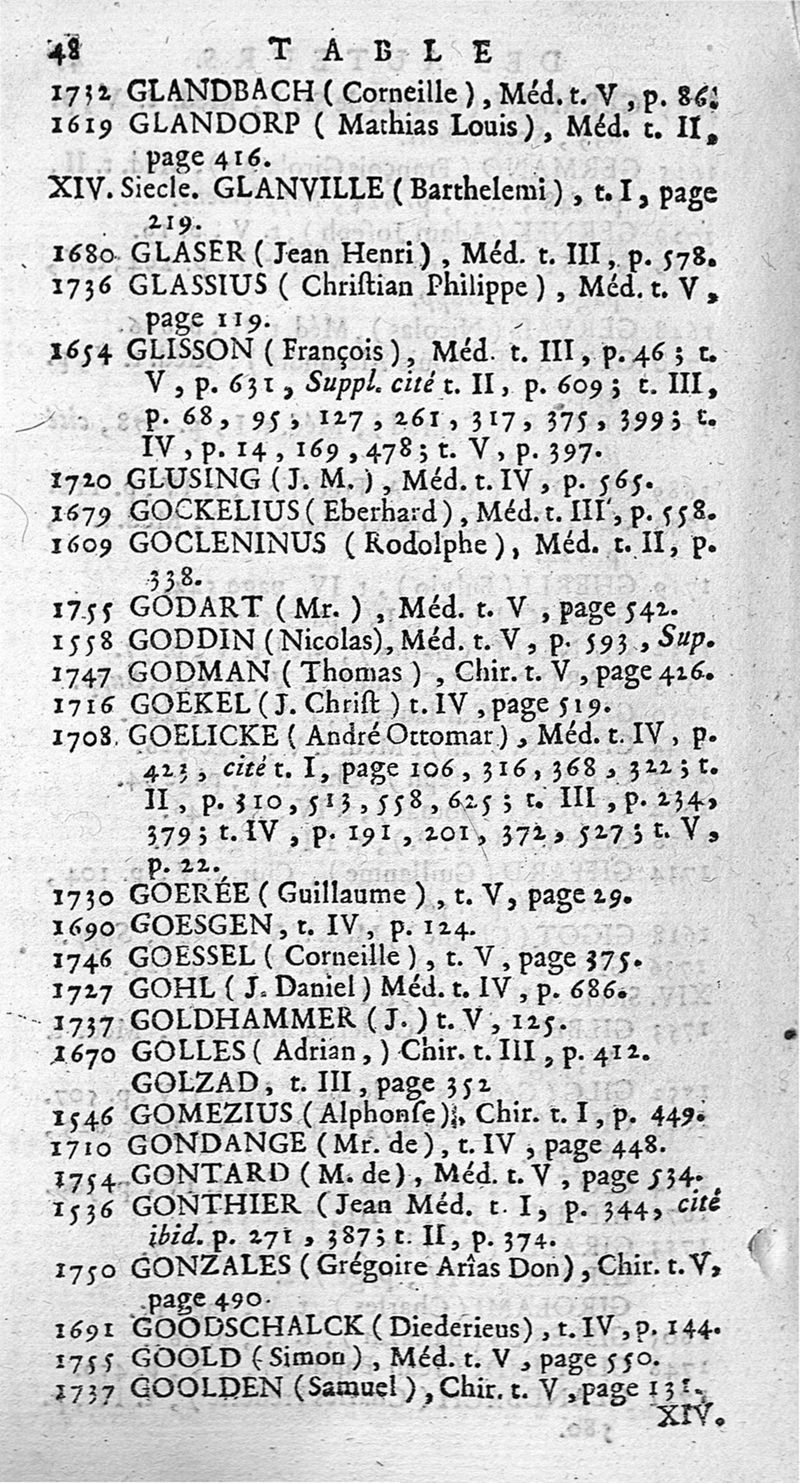 48 TABLE
1732 GLANDBACH ( Corneille ) , Méd. t. V , p. 86.
1619 GLANDORP ( Mathias Louis) , Méd. t. II,
page 416.
XIV. Siecle. GLANVILLE ( Barthelemi ) , t. I, page
219.
1680 GLASER ( Jean Henri ) , Méd. t. III, p. 578.
1736 GLASSIUS ( Chriſtian Philippe ) , Méd. t. V,
page 119.
1654 GLISSON ( François ) , Méd. t. III, p. 46 ; t.
V , p. 631 , Suppl. cité t. II, p. 609 ; t. III,
p. 68, 95, 127, 261, 317, 375, 399 ; t.
IV , p. 14, 169, 478 ; t. V, p. 397.
1720 GLUSING ( J. M. ) , Méd. t. IV, p. 565.
1679 GOCKELIUS ( Eberhard ) , Méd. t. III, p. 558.
1609 GOCLENINUS ( Rodolphe ) , Méd. t. II, p.
338.
1755 GODART ( Mr. ) , Méd. t. V , page 542.
1558 GODDIN (Nicolas), Méd. t. V, p. 593 , Sup.
1747 GODMAN ( Thomas ) , Chir. t. V , page 426.
1716 GOEKEL ( J. Chriſt ) t. IV , page 519.
1708. GOELICKE ( André Ottomar ) , Méd. t. IV, p.
423, cité t. I, page 106, 316, 368, 322 ; t.
II, p. 310, 513, 558, 625 ; t. III , p. 234,
379 ; t. IV , p. 191, 201, 372, 527 ; t. V,
p. 22.
1730 GOERÉE ( Guillaume ) , t. V, page 29.
1690 GOESGEN, t. IV, p. 124.
1746 GOESSEL ( Corneille ) , t. V, page 375.
1727 GOHL ( J. Daniel ) Méd. t. IV , p. 686.
1737 GOLDHAMMER ( J. ) t. V, 125.
1670 GOLLES ( Adrian , ) Chir. t. III, p. 412.
GOLZAD, t. III, page 352
1546 GOMEZIUS ( Alphonſe ), Chir. t. I, p. 449.
1710 GONDANGE ( Mr. de ) , t. IV , page 448.
1754 GONTARD ( M. de ) , Méd. t. V , page 534.
1536 GONTHIER ( Jean Méd. t. I, p. 344, cité
ibid. p. 271 , 387 ; t. II, p. 374.
1750 GONZALES ( Grégoire Arîas Don ) , Chir. t. V,
page 490.
1691 GOODSCHALCK ( Diederieus ) , t. IV , p. 144.
1755 GOOLD ( Simon ) , Méd. t. V , page 550.
1737 GOOLDEN ( Samuel ) , Chir. t. V , page 131.
XIV.